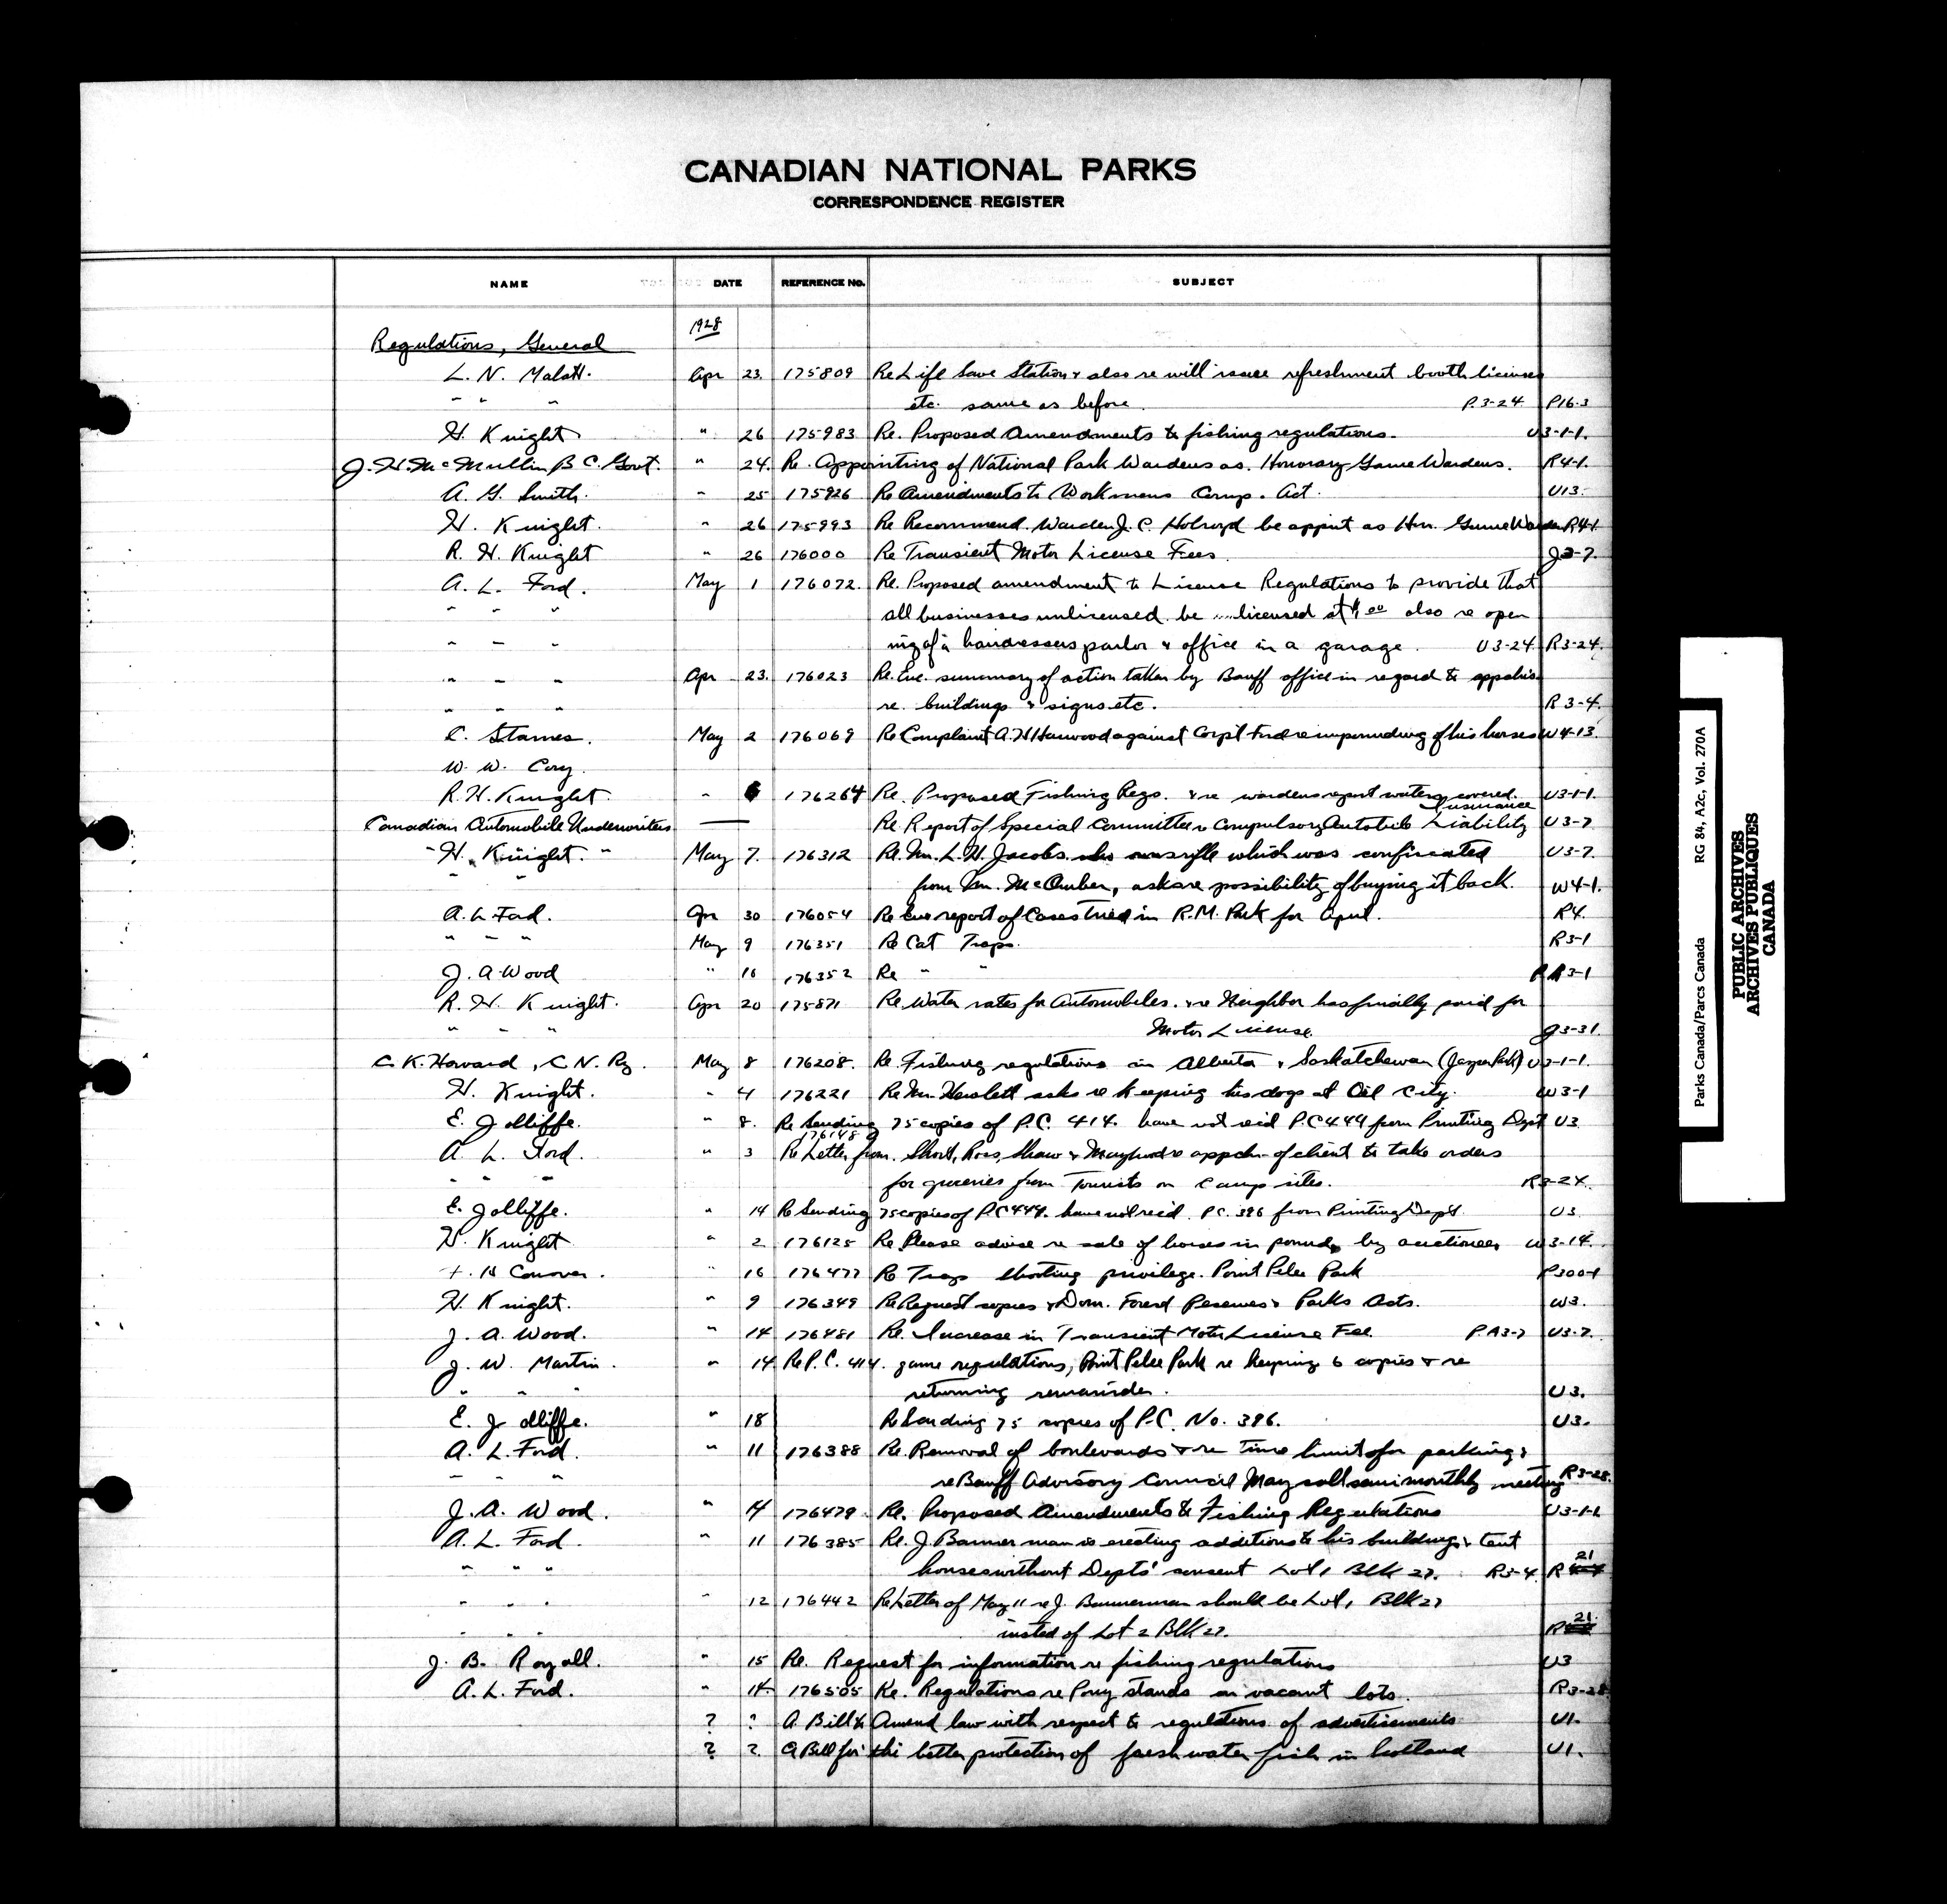 CANADIAN NATIONAL PARKS
CORRESPONDENCE REGISTER
NAME DATE REFERENCE No. SUBJECT
1928
Regulations, General
L. N. Malott. Apr 23. 175809 Re Life Save Station & also re will issue refreshment booth licenses
" " " etc. same as before. P.3-24 P16-3
H. Knight " 26 175983 Re. Proposed Amendments to fishing regulations. U3-1-1.
J. H. McMullin B C. Govt. " 24. Re. Appointing of National Park Wardens as. Honorary Game Wardens. R4-1.
A. G. Smith. " 25 175926 Re Amendments to Workmens Comp. Act. U13.
H. Knight. " 26 175993 Re Recommend. Warden J. C. Holroyd be appint as Hon. Game Warden R4-1.
R. H. Knight " 26 176000 Re Transient Motor License Fees. J3-7.
A. L. Ford. May 1 176072. Re. Proposed amendment to License Regulations to provide that
" " " all businesses unlicensed be licensed at $1.00 also re open
" " " ing of a hairdressers parlor & office in a garage. U3-24. R3-24.
" " " Apr 23. 176023 Re. Enc. summary of action taken by Banff office in regard to
" " " re. buildings & signs etc. R3-4.
C. Starnes. May 2 176069 Re Complaint A. H. Harwood against Corpl Ford re impounding of his horses W4-13.
W. W. Cory.
R. H. Knight. " 6 176264 Re. Proposed Fishing Regs. & re wardens report waters covered. U3-1-1.
Insurance
Canadian Automobile Underwriters — Re. Report of Special Committee Compulsory Autobile Liability U3-7
" H. Knight. " May 7. 176312 Re. Mr. L. H. Jacobs. rifle which was confiscated U3-7.
" " from Mr. McComber, asks re possibility of buying it back. W4-1.
A. L. Ford. Apr 30 176054 Re Enc report of Cases tried in R.M. Park for April. R4.
" " " May 9 176351 Re Cat Traps. R3-1
J. A. Wood " 16 176352 Re " " R3-1
R. H. Knight. Apr 20 175871 Re. Water rates for Automobiles. & re Neighbor has finally paid for
" " " Motor License. J3-31.
C. K. Howard, C N. Ry. May 8 176208. Re. Fishing regulations in Alberta & Saskatchewan (Jasper Park) U3-1-1.
H. Knight. " 4 176221 Re Mr. Hewlett asks re keeping his dogs at Oil City. W3-1
E. Jolliffe. " 8. Re Sending 75 copies of P.C. 414. have not recid P.C 449 from Printing Dept U3
176148
A. L. Ford. " 3 Re Letter from. Short, Ross, Shaw & Mayhood re appcln. of client to take orders
" " " for groceries from Tourists on Camp sites. R3-24.
E. Jolliffe. " 14 Re Sending 75 copies of P.C 449. have not recid. P.C. 396 from Printing Dept. U3
H. Knight " 2 176125 Re. Please advise re sale of horses in pound, by auctioneer W3-14.
H. Conover. " 16 176477 Re Trap shooting privilege. Point Pelee Park P300-1
H. Knight. " 9 176349 Re Request copies & Dom. Forest Reserves & Parks Acts. W3.
J. A. Wood. " 14 176481 Re. Increase in Transient Motor License Fee. P.A3-7 U3-7.
J. W. Martin. " 14. Re P.C. 414. game regulations, Point Pelee Park re keeping 6 copies & re
" " " returning remainder. U3.
E. Jolliffe. " 18 Re Sending 75 copies of P.C. No. 396. U3.
A. L. Ford. " 11 176388 Re. Removal of boulevards & re time limit for parking &
" " " re Banff Advisory Council May call semi monthly meeting R3-28.
J. A. Wood. " 14 176479. Re. Proposed Amendments to Fishing Regulations U3-1-1
A. L. Ford. " 11 176385 Re. J. Bannerman is erecting additions to his buildings & tent
" " " houses without Depts' consent Lot 1 Blk 27. R3-4. R 21
" " " " 12 176442 Re Letter of May 11 re J. Bannerman should be Lot 1 Blk 27
" " " insted of Lot 2 Blk 27. R 21
J. B. Royall. " 15 Re. Request for information re fishing regulations U3
A. L. Ford. " 14. 176505 Re. Regulations re Pony stands on vacant lots. R3-28
? ? A Bill to Amend law with respect to regulations of advertisements U1.
? ? A Bill for the better protection of freshwater fish in Scotland U1.
Parks Canada/Parcs Canada RG 84, A2c, Vol. 270A
PUBLIC ARCHIVES
ARCHIVES PUBLIQUES
CANADA